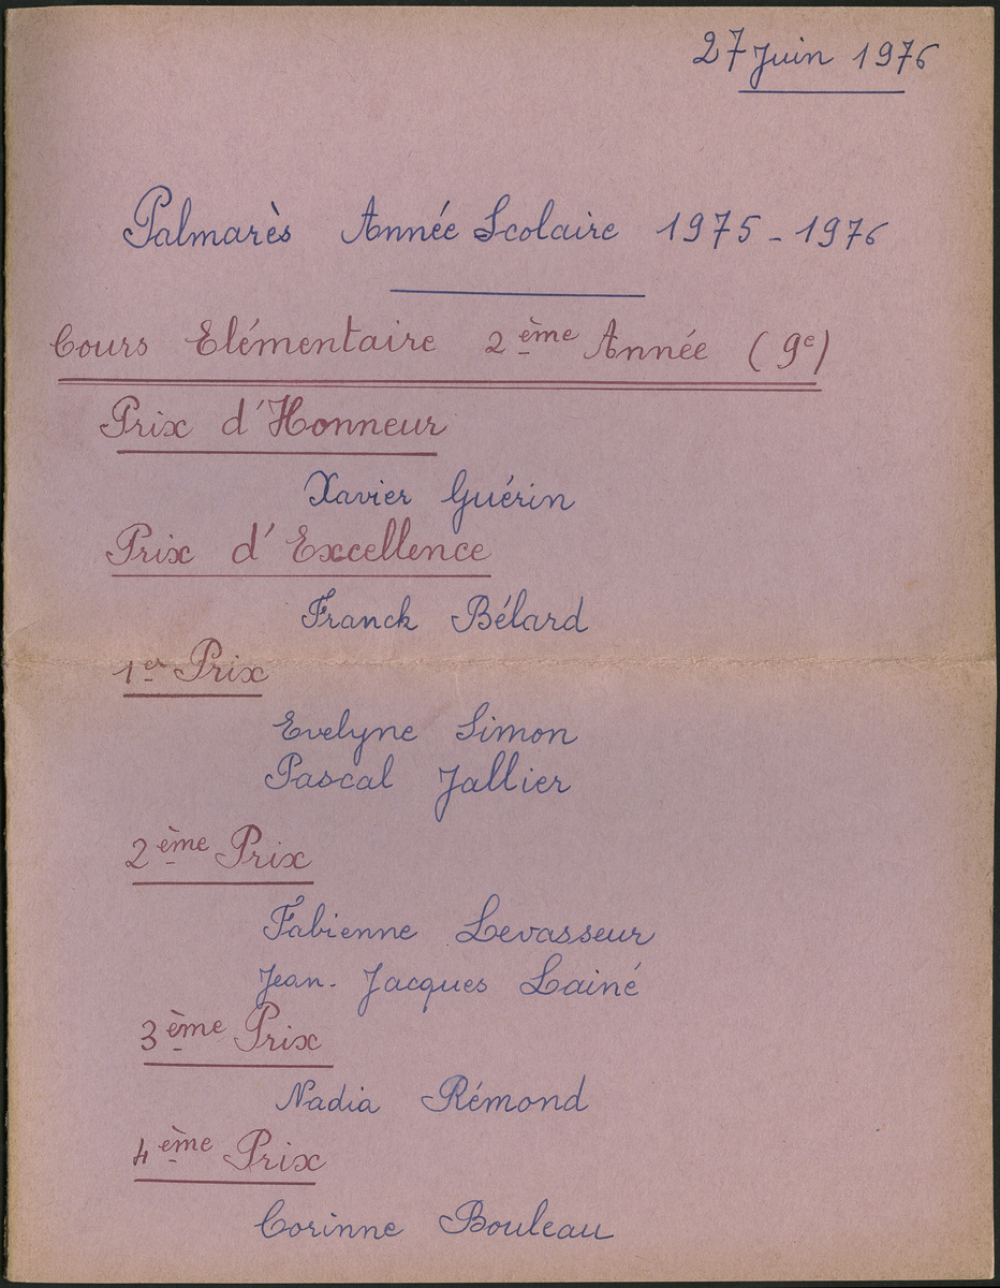 27 Juin 1976
Palmarès Année Scolaire 1975-1976
Cours Elémentaire 2ème Année (9e)
Prix d'Honneur
Xavier Guérin
Prix d'Excellence
Franck Bélard
1er Prix
Evelyne Simon
Pascal Jallier
2ème Prix
Fabienne Levasseur
Jean-Jacques Lainé
3ème Prix
Nadia Rémond
4ème Prix
Corinne Bouleau